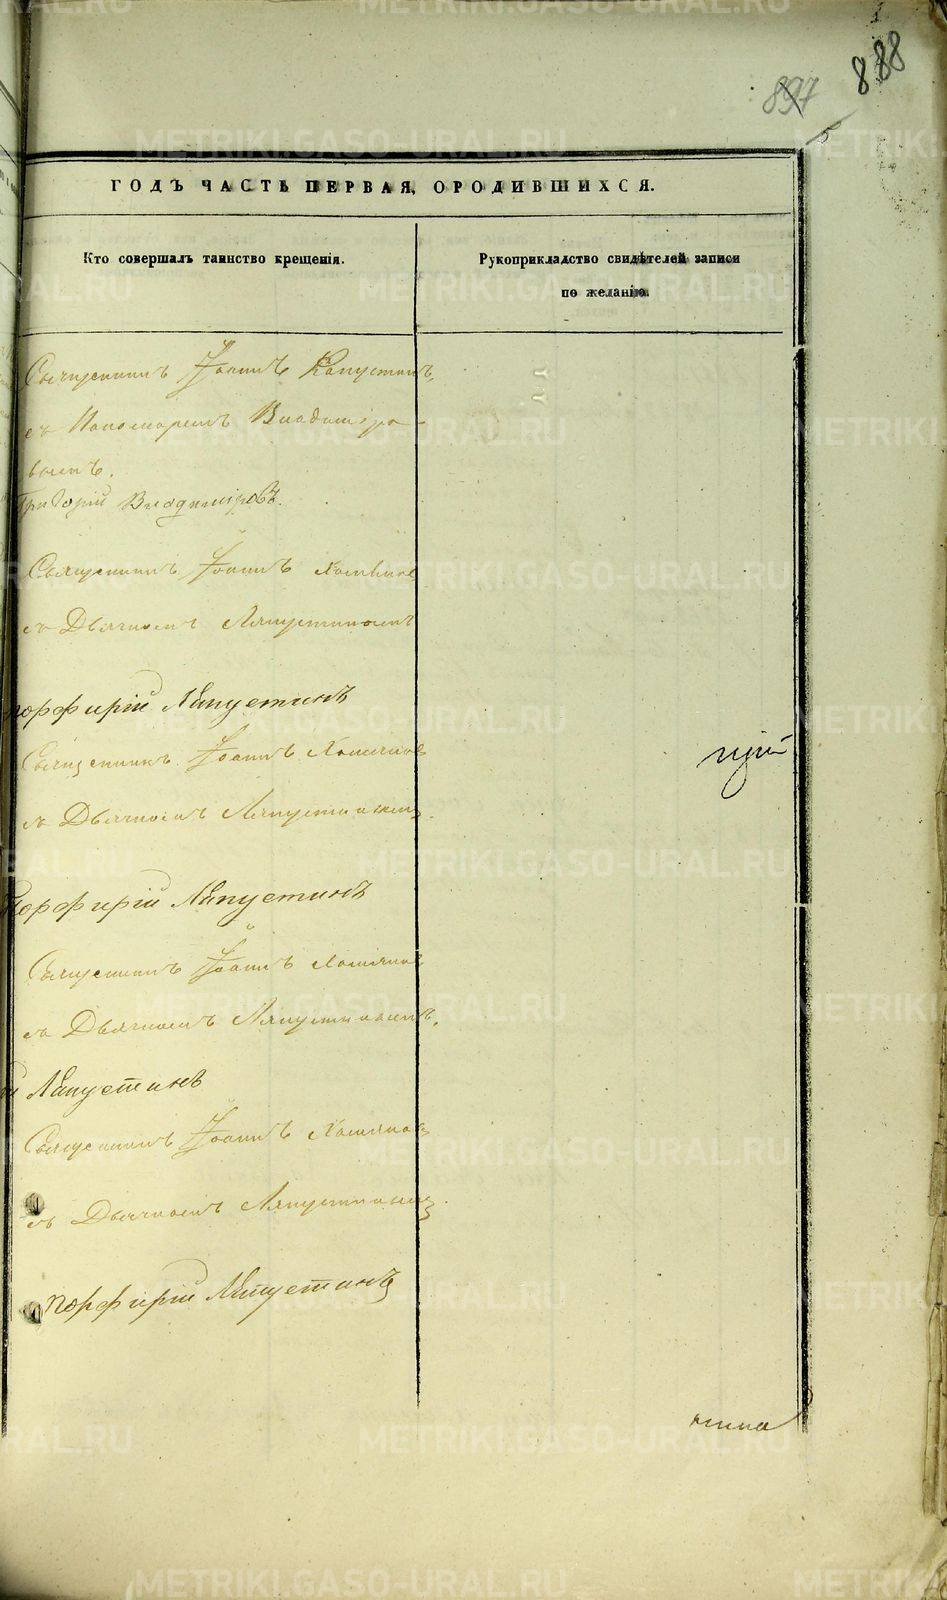 888
897
5
ГОДЪ ЧАСТЬ ПЕРВАЯ, О РОДИВШИХСЯ.
Кто совершалъ таинство крещенія.
Рукоприкладство свидѣтелей записи
по желанію.
Священникъ Іоаннъ
съ Пономаремъ Владиміро-
вымъ.
Григорій Владиміровъ.
Священникъ Іоаннъ
съ Дьячкомъ Ляпустинымъ
Порфирій Ляпустинъ
Священникъ Іоаннъ
съ Дьячкомъ Ляпустинымъ.
Порфирій Ляпустинъ
Священникъ Іоаннъ
съ Дьячкомъ Ляпустинымъ.
Ляпустинъ
Священникъ Іоаннъ
съ Дьячкомъ Ляпустинымъ.
Порфирій Ляпустинъ
METRIKI.GASO-URAL.RU